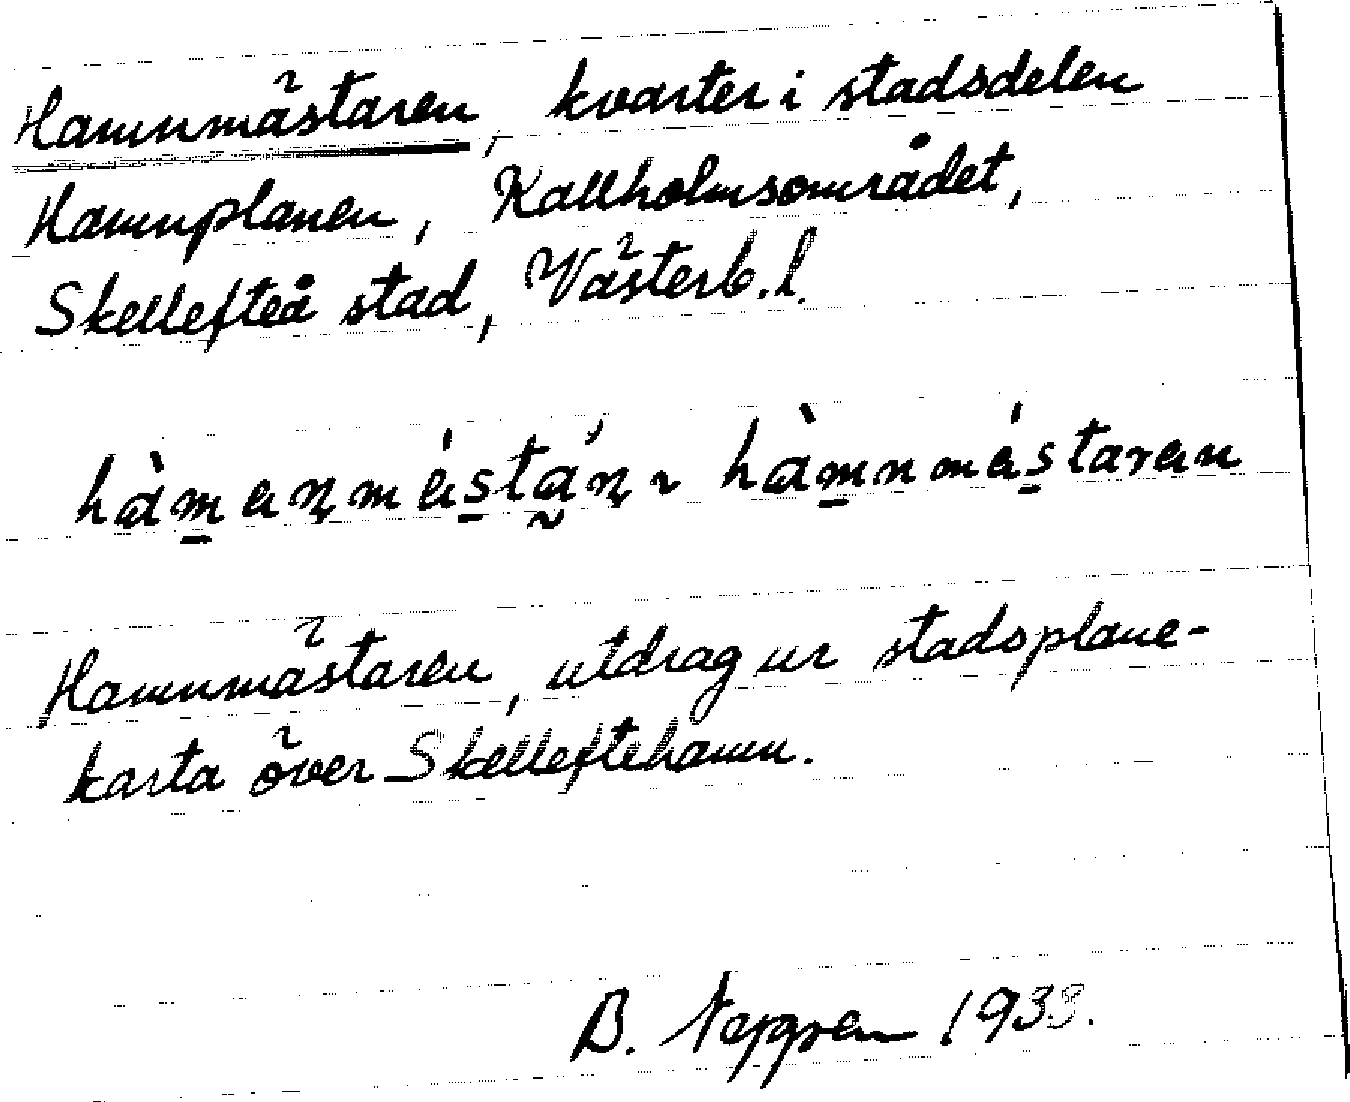 Hamnmästaren, kvarter i stadsdelen
Hamnplanen, Kallholmsområdet,
Skellefteå stad, Västerb.l.
Hamnmästaren, utdrag ur stadsplane-
karta över Skelleftehamn.
B. 193